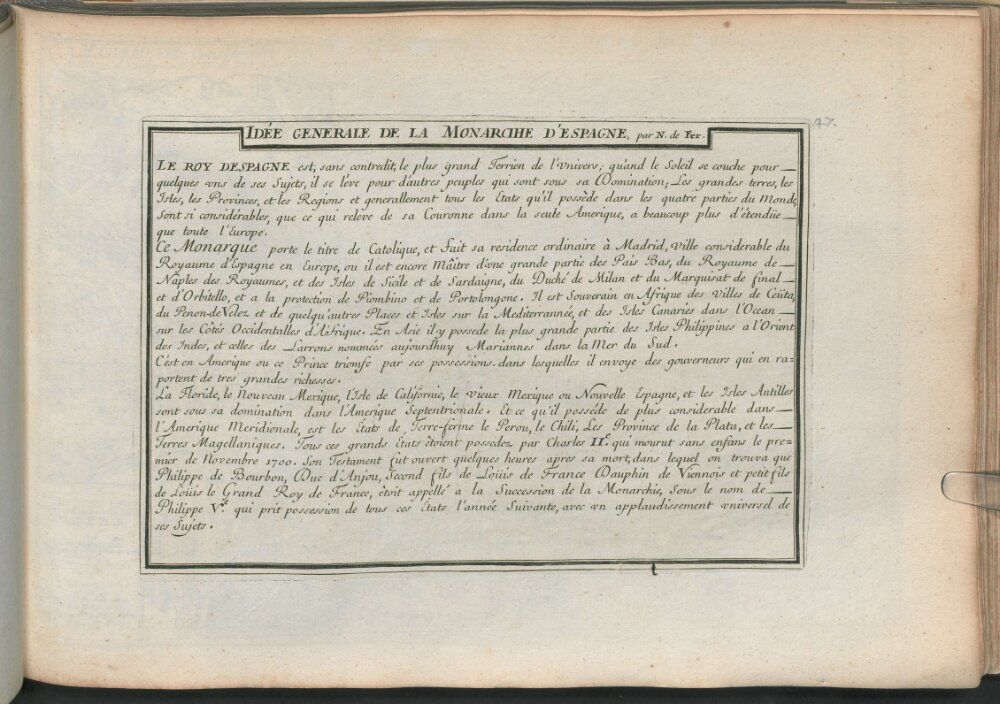 IDÉE GENERALE DE LA MONARCHIE D'ESPAGNE, par N. de Fer.
47.
LE ROY DESPAGNE est, sans contredit, le plus grand Terrien de l'Vnivers; quánd le Soleil se couche pour
quelques vns de ses Sujets, il se léve pour d'autres peuples qui sont sous sa Domination; Les grandes terres, les
Isles, les Provinces, et les Regions et generallement tous les Etats qu'il possède dans les quatre parties du Monde,
sont si considérables, que ce qui releve de sa Couronne dans la seule Amerique, a beaucoup plus d'étendüe
que toute l'Europe.
Ce Monarque porte le titre de Catolique, et fait sa residence ordinaire à Madrid, Ville considerable du
Royaume d'Espagne en Europe, ou il est encore Maître d'vne grande partie des Païs Bas, du Royaume de
Naples des Royaumes, et des Isles de Sicile et de Sardaigne, du Duché de Milan et du Marquisat de final
et d'Orbitello, et a la protection de Piombino et de Portolongone. Il est Souverain en Afrique des Villes de Ceüta,
du Penon-de Velez et de quelqu'autres Places et Isles sur la Mediterrannée, et des Isles Canaries dans l'Ocean
sur les Côtés Occidentalles d'Afrique. En Asie il y possede la plus grande partie des Isles Philippines a l'Orient
des Indes, et celles des Larrons nommées aujourdhuy Mariannes dans la Mer du Sud.
C'est en Amerique ou ce Prince triomfe par ses possessions. dans lesquelles il envoye des gouverneurs qui en ra-
portent de tres grandes richesses.
La Floride, le Nouveau Mexique, l'Isle de Californie, le vieux Mexique ou Nouvelle Espagne, et les Isles Antilles
sont sous sa domination dans l'Amerique Septentrionale. Et ce qu'il posséde de plus considerable dans
l'Amerique Meridionale, est les Etats de Terre-ferme le Perou, le Chili, Les Province de la Plata, et les
Terres Magellaniques. Tous ces grands Etats étoient possedez par Charles II.e qui mourut sans enfans le pre-
mier de Novembre 1700. Son Testament fut ouvert quelques heures apres sa mort, dans lequel on trouva que
Philippe de Bourbon, Duc d'Anjou, Second fils de Loüis de France Dauphin de Viennois et petit fils
de Loüis le Grand Roy de France, étoit appellé a la Succession de la Monarchie, Sous le nom de
Philippe V.e qui prit possession de tous ces Etats l'année Suivante, avec vn applaudissement vniversel de
ses Sujets.
t